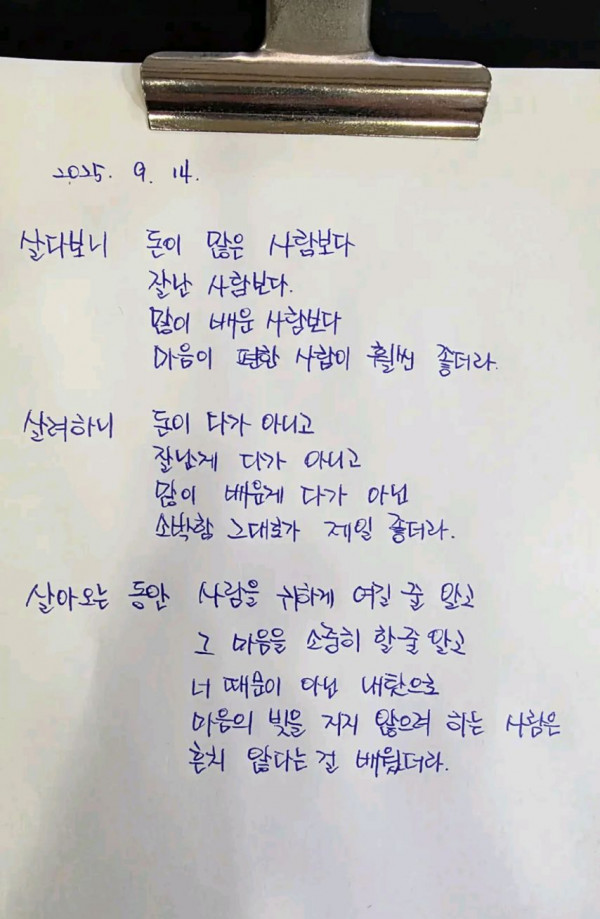 2025. 9. 14.
살다보니 돈이 많은 사람보다
잘난 사람보다.
많이 배운 사람보다
마음이 편한 사람이 훨씬 좋더라.
살려하니 돈이 다가 아니고
잘난게 다가 아니고
많이 배운게 다가 아닌
소박함 그대로가 제일 좋더라.
살아오는 동안 사람을 귀하게 여길 줄 알고
그 마음을 소중히 할줄 알고
너 때문이 아닌 내탓으로
마음의 빚을 지지 않으려 하는 사람은
흔치 않다는 걸 배웠더라.